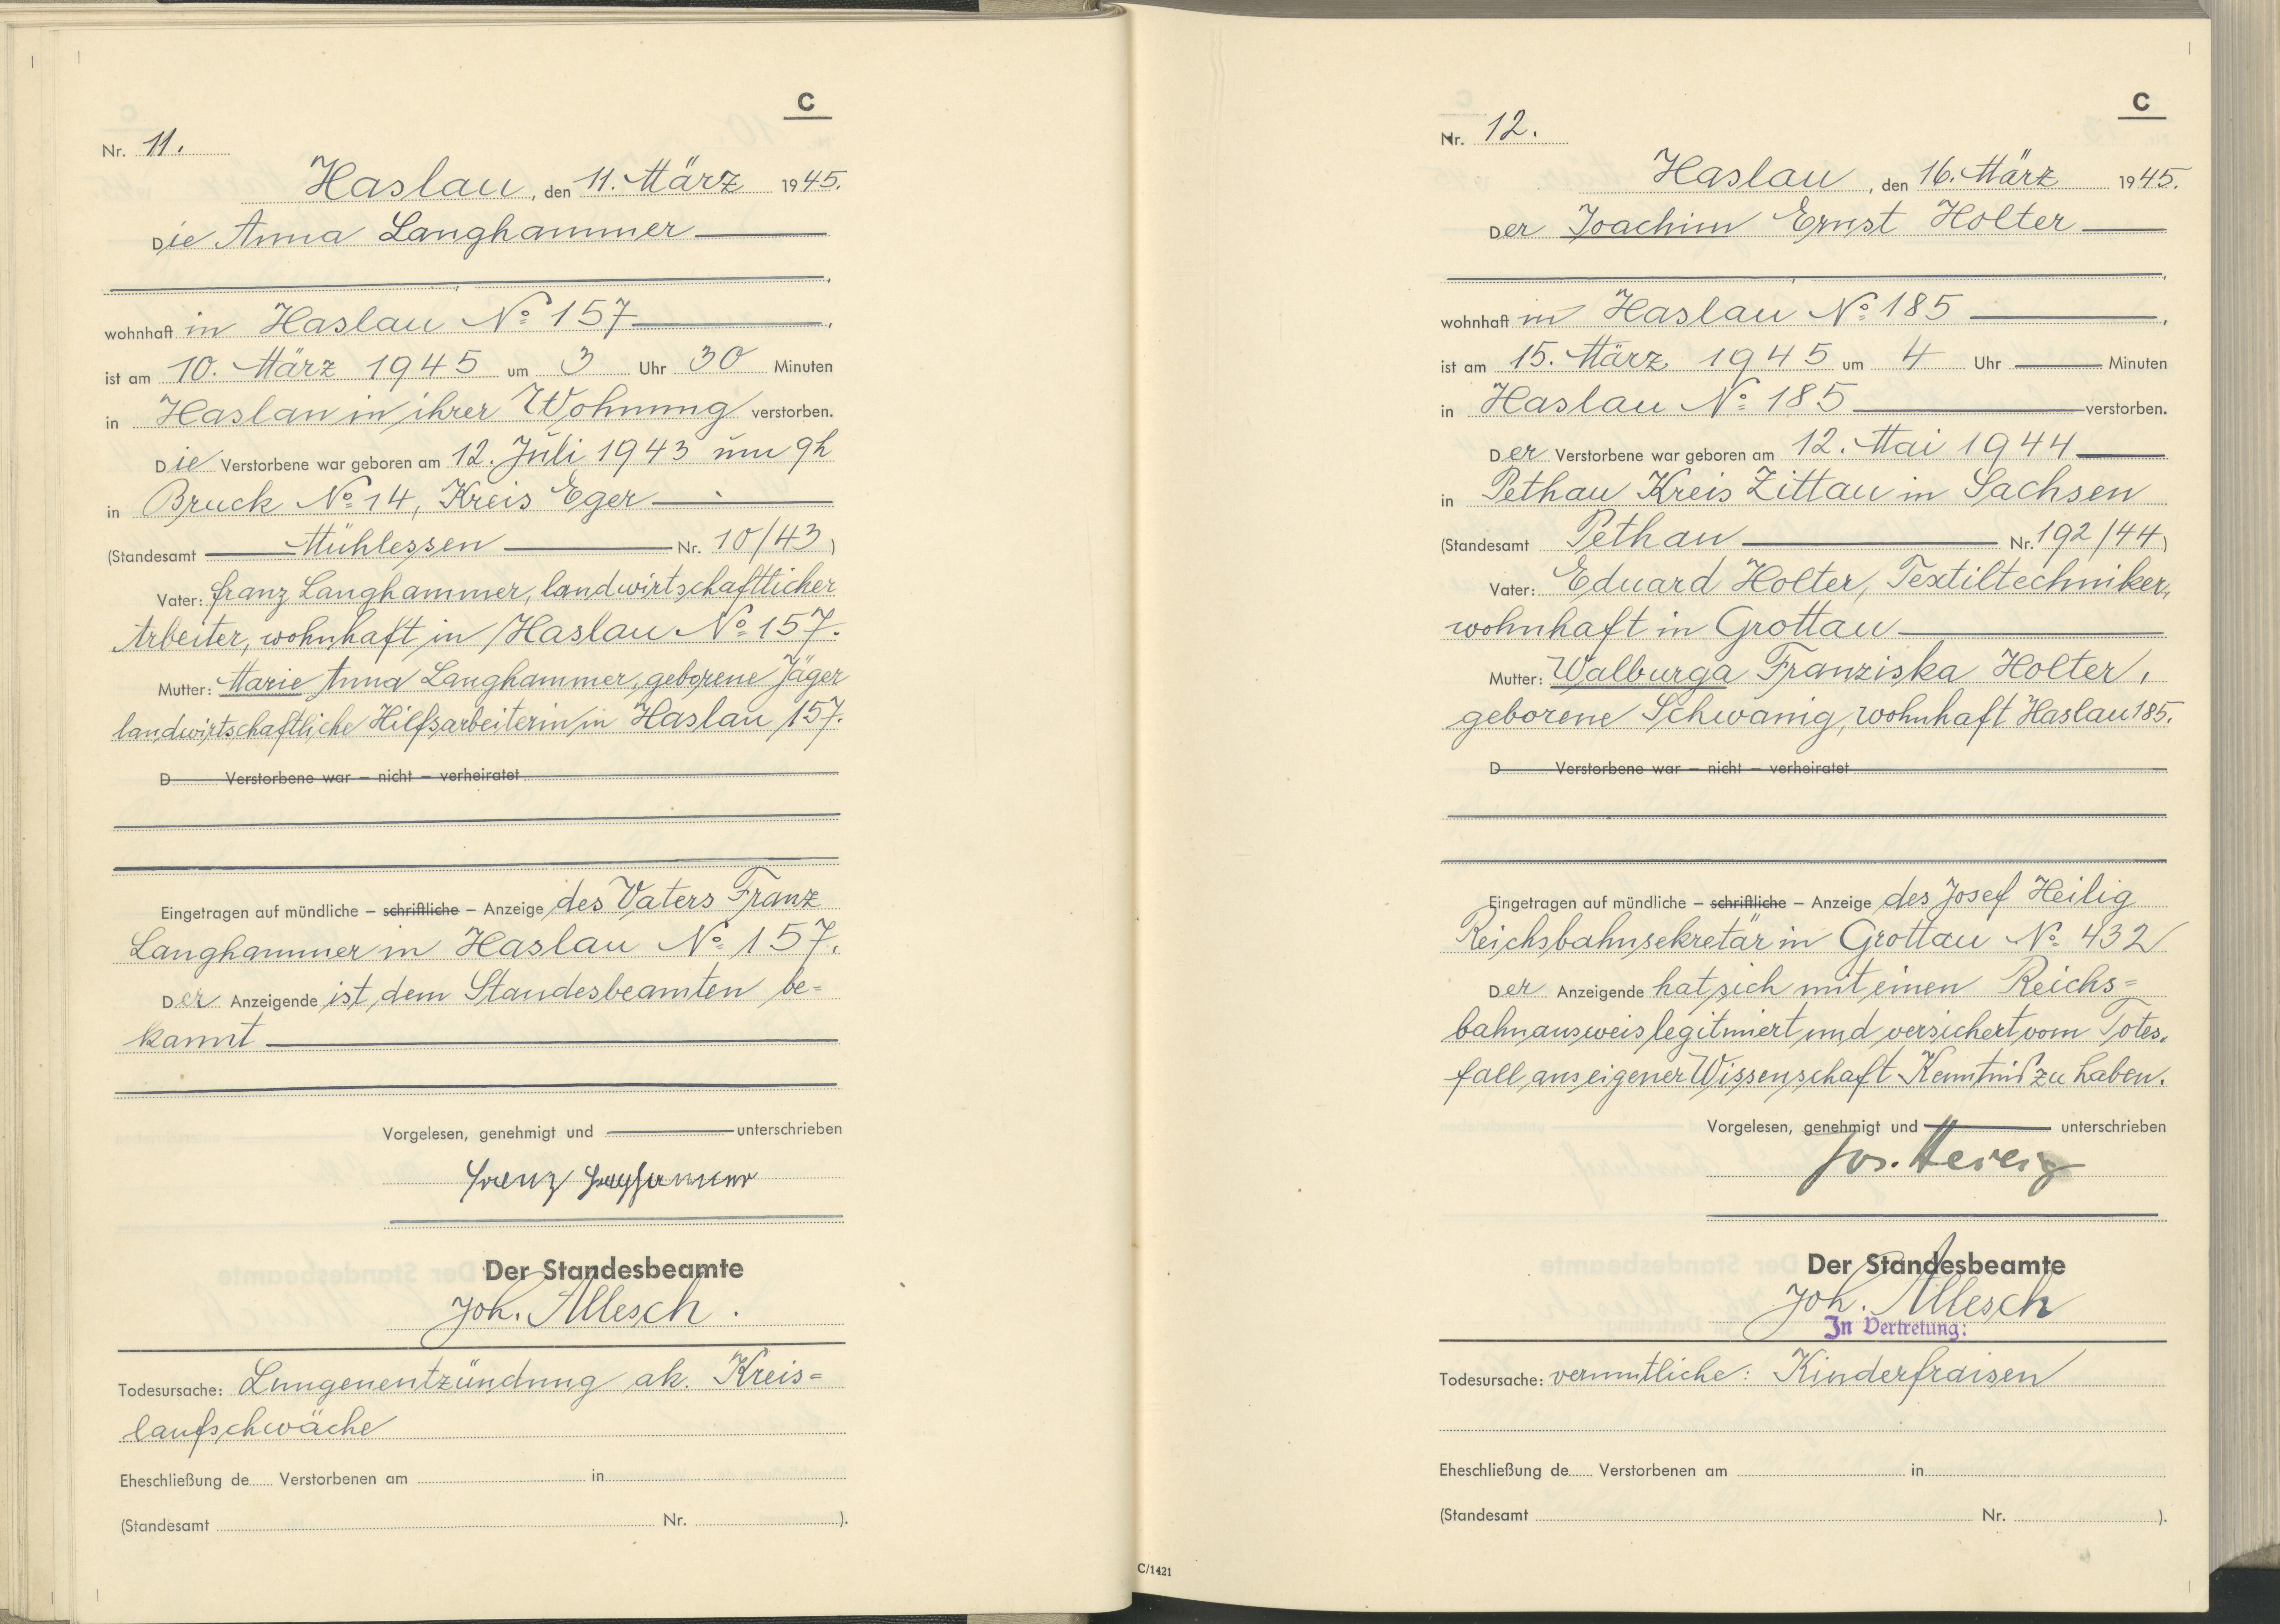 C
Nr. 11.
Haslau, den 11. März 1945.
Die Anna Langhammer
wohnhaft in Haslau No 157,
ist am 10. März 1945 um 3 Uhr 30 Minuten
in Haslau in ihrer Wohnung verstorben.
Die Verstorbene war geboren am 12. Juli 1943 um 9h
in Bruck No 14, Kreis Eger
(Standesamt Mühlessen Nr. 10/43)
Vater: Franz Langhammer, landwirtschaftlicher
Arbeiter, wohnhaft in Haslau No 157.
Mutter: Marie Anna Langhammer, geborene Jäger
landwirtschaftliche Hilfsarbeiterin in Haslau 157.
D Verstorbene war – nicht – verheiratet
Eingetragen auf mündliche – schriftliche – Anzeige des Vaters Franz
Langhammer in Haslau No 157.
Der Anzeigende ist dem Standesbeamten be=
kannt
Vorgelesen, genehmigt und unterschrieben
Franz Langhammer
Der Standesbeamte
Joh. Allesch.
Todesursache: Lungenentzündung ak. Kreis=
laufschwäche
Eheschließung de Verstorbenen am in
(Standesamt Nr. ).
C
Nr. 12.
Haslau, den 16. März 1945.
Der Joachim Ernst Holter
wohnhaft in Haslau No 185,
ist am 15. März 1945 um 4 Uhr Minuten
in Haslau No 185 verstorben.
Der Verstorbene war geboren am 12. Mai 1944
in Pethau Kreis Zittau in Sachsen
(Standesamt Pethau Nr. 192/44)
Vater: Eduard Holter, Textiltechniker,
wohnhaft in Grottau
Mutter: Walburga Franziska Holter,
geborene Schwanig, wohnhaft Haslau 185.
D Verstorbene war – nicht – verheiratet
Eingetragen auf mündliche – schriftliche – Anzeige des Josef Heilig
Reichsbahnsekretär in Grottau No 432
Der Anzeigende hat sich mit einen Reichs=
bahnausweis legitimiert und versichert vom Totes.
fall aus eigener Wissenschaft Kenntnis zu haben.
Vorgelesen, genehmigt und unterschrieben
Jos. Heilig
Der Standesbeamte
Joh. Allesch
In Vertretung:
Todesursache: vermutliche: Kinderfraisen
Eheschließung de Verstorbenen am in
(Standesamt Nr. ).
C/1421